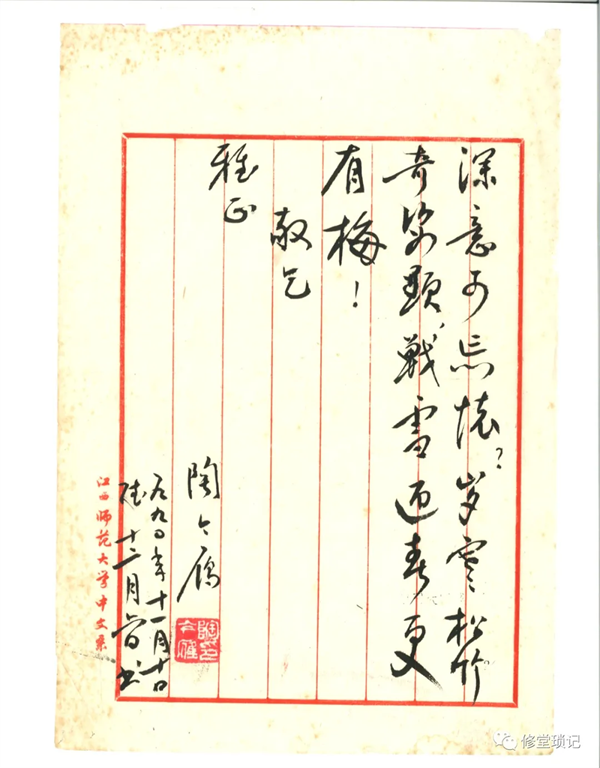 深意可忘懷？岁寒松竹
奇姿顯，戰雪迎春更
有梅！
敬乞
雅正
陶今雁
陶今雁印
一九九〇年十一月十日
十二月 日书
江西师范大学中文系
修堂琐记